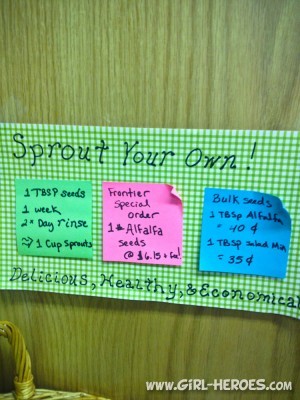 Sprout Your Own!
1 TBSP seeds
1 week
2x Day rinse
⇒ 1 Cup Sprouts
Frontier
Special
order
1# Alfalfa
seeds
@ $6.15 + fee!
Bulk seeds
1 TBsp Alfalfa
= 40 ¢
1 TBSP salad Mix
= 35 ¢
Delicious, Healthy, & Economical
WWW.GIRL-HEROES.COM